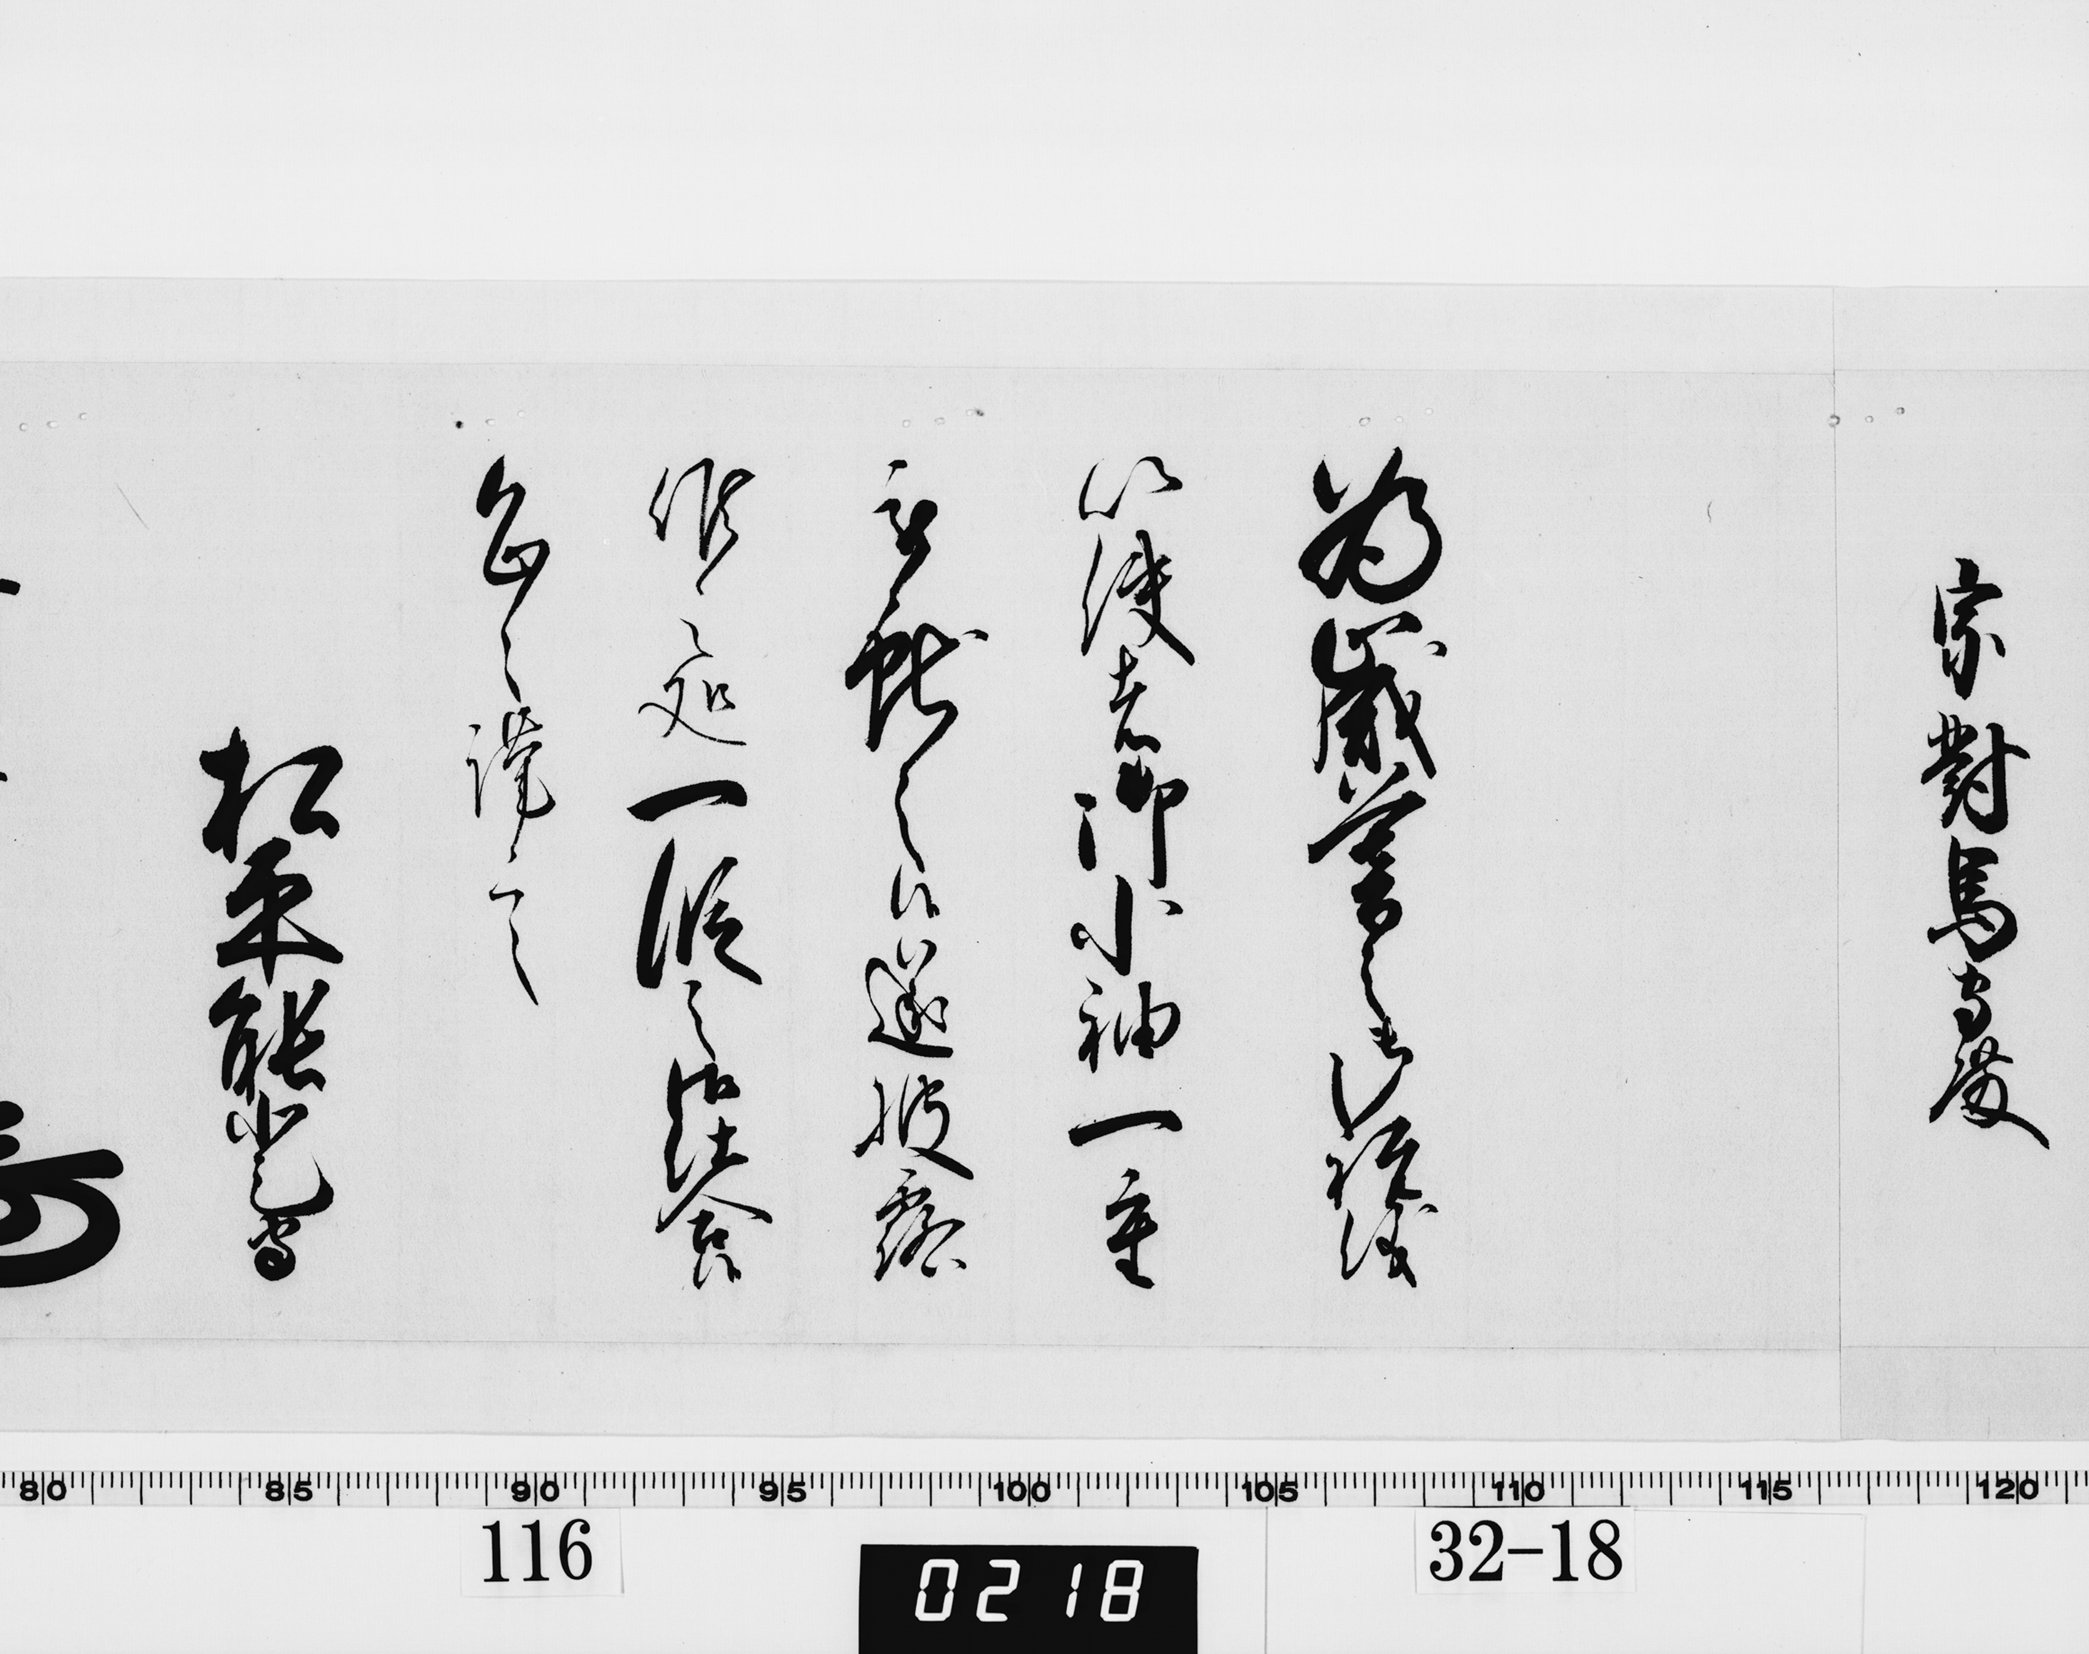 宗對馬守殿
為歳暮之御祝儀
以使者御小袖一重
被献之候遂披露
候之処一段之御仕合候
恐々謹言
松平能登守
80 85 90 95 100 105 110 115 120
116
0218
32-18